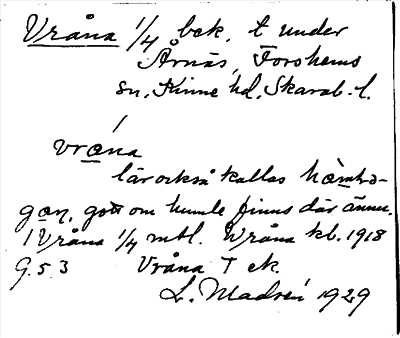 Vråna 1/4 bek. t under
Årnäs, Forshems
sn. Kinne hd. Skarab. l.
vråna
lär också kallas
gott om humle finns där ännu.
1 Vråna 1/4 mtl. Wråna kb. 1918
G. 53 Vråna T ek.
L. Madsén 1929